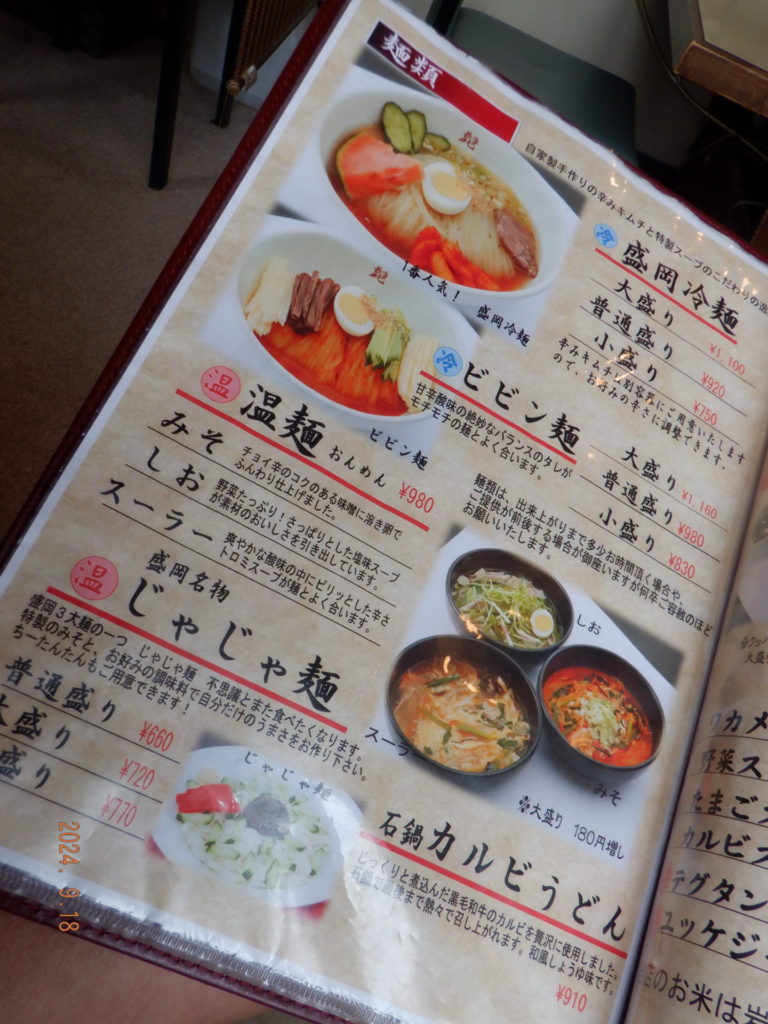 麺類
自家製手作りの辛みキムチと特製スープのこだわりの逸
冷 盛岡冷麺
大盛り ¥1,100
普通盛り ¥920
小盛り ¥750
辛みキムチは別容器にご用意いたします
ので、お好みの辛さに調整できます。
1番人気！
盛岡冷麺
冷 ビビン麺
甘辛酸味の絶妙なバランスのタレが
モチモチの麺とよく合います。
大盛り ¥1,160
普通盛り ¥980
小盛り ¥830
ビビン麺
麺類は、出来上がりまで多少お時間頂く場合や、
ご提供が前後する場合が御座いますが何卒ご容赦のほど
お願いいたします。
温 温麺 おんめん ¥980
みそ
チョイ辛のコクのある味噌に溶き卵で
ふんわり仕上げました。
しお
野菜たっぷり！さっぱりとした塩味スープ
が素材のおいしさを引き出しています。
スーラー
爽やかな酸味の中にピリッとした辛さ
トロミスープが麺とよく合います。
しお
スーラー
みそ
※大盛り 180円増し
温 盛岡名物
じゃじゃ麺
盛岡3大麺の一つ じゃじゃ麺 不思議とまた食べたくなります。
特製のみそと、お好みの調味料で自分だけのうまさをお作り下さい。
ちーたんたんもご用意できます！
普通盛り ¥660
大盛り ¥720
盛り ¥770
じゃじゃ麺
石鍋カルビうどん
じっくりと煮込んだ黒毛和牛のカルビを贅沢に使用しました。
石鍋で最後まで熱々で召し上がれます。和風しょうゆ味です。
¥910
大盛
カメ
野菜ス
たまごス
カルビス
テグタン
ユッケジ
のお米は岩
2024. 9. 18